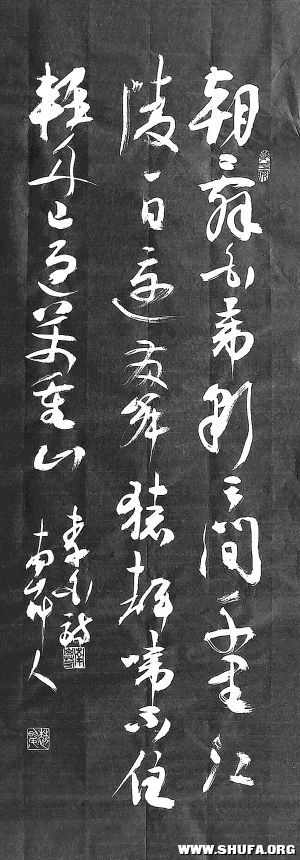 朝辭白帝彩雲間千里江
陵一日還兩岸猿聲啼不住
輕舟已過萬重山
李白詩
WWW.SHUFA.ORG